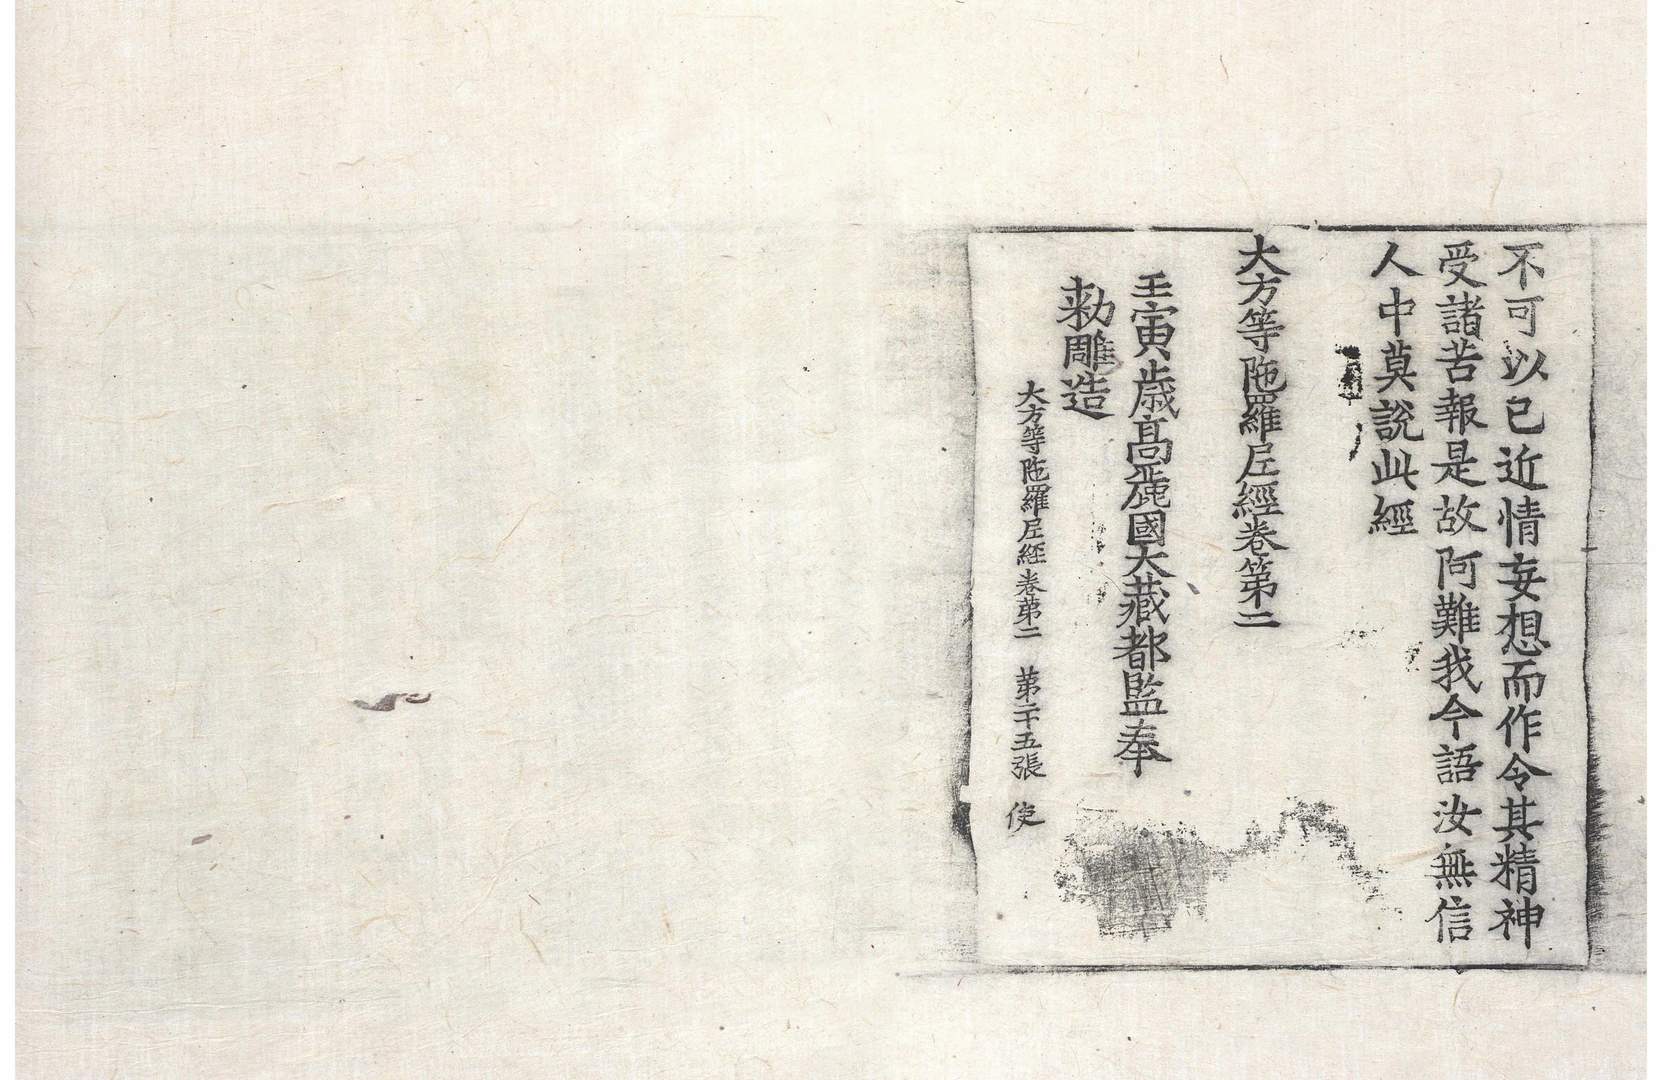 不可以已近情妄想而作令其精神
受諸苦報是故阿難我今語汝無信
人中莫說此經
大方等陁羅尼經卷第二
壬寅歲高麗國大藏都監奉
勑雕造
大方等陁羅尼経卷苐二 苐二十五張 使